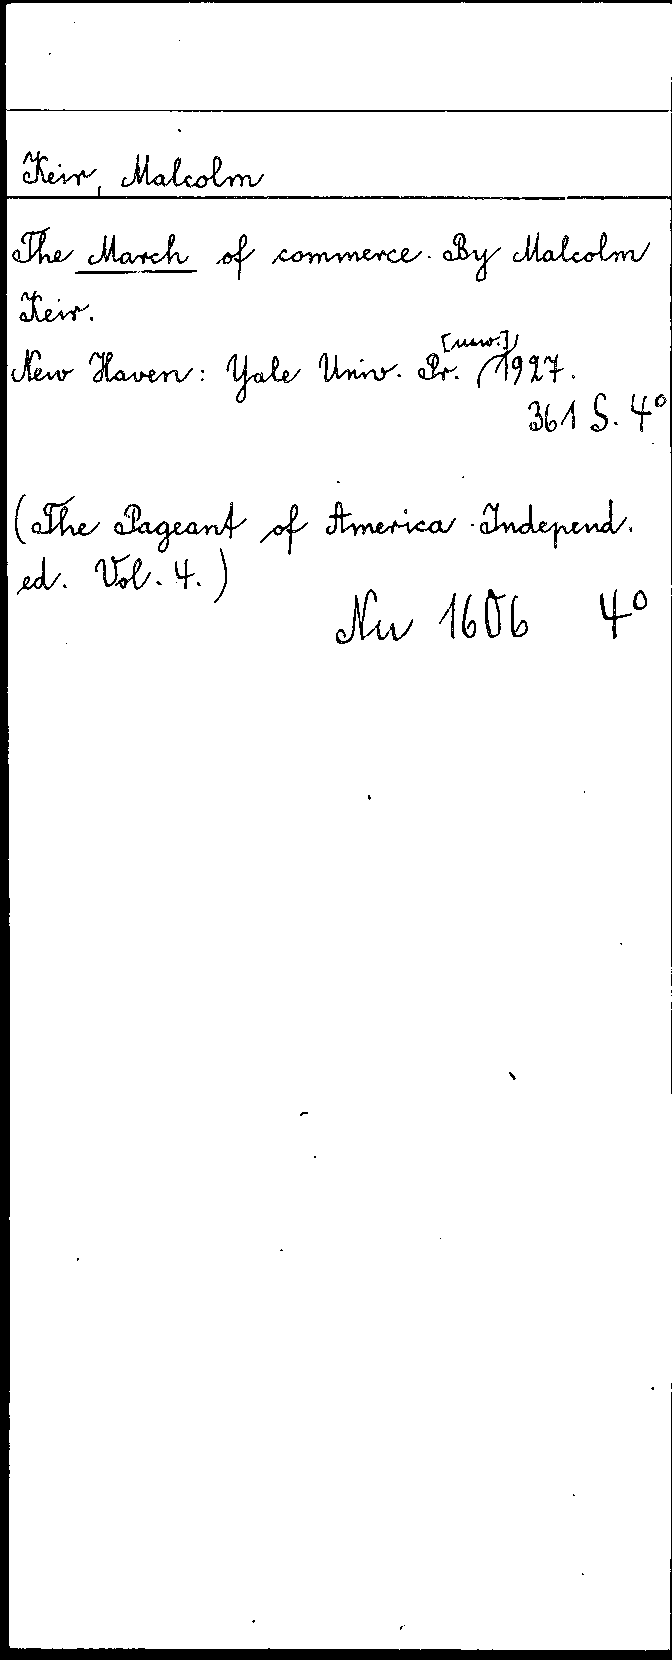 Keir, Malcolm
The March of commerce. By Malcolm
Keir.
[usw.]
New Haven: Yale Univ. Pr. 1927.
361 S. 4°
(The Pageant of America. Independ.
ed. Vol. 4.)
Nw 1606 4°